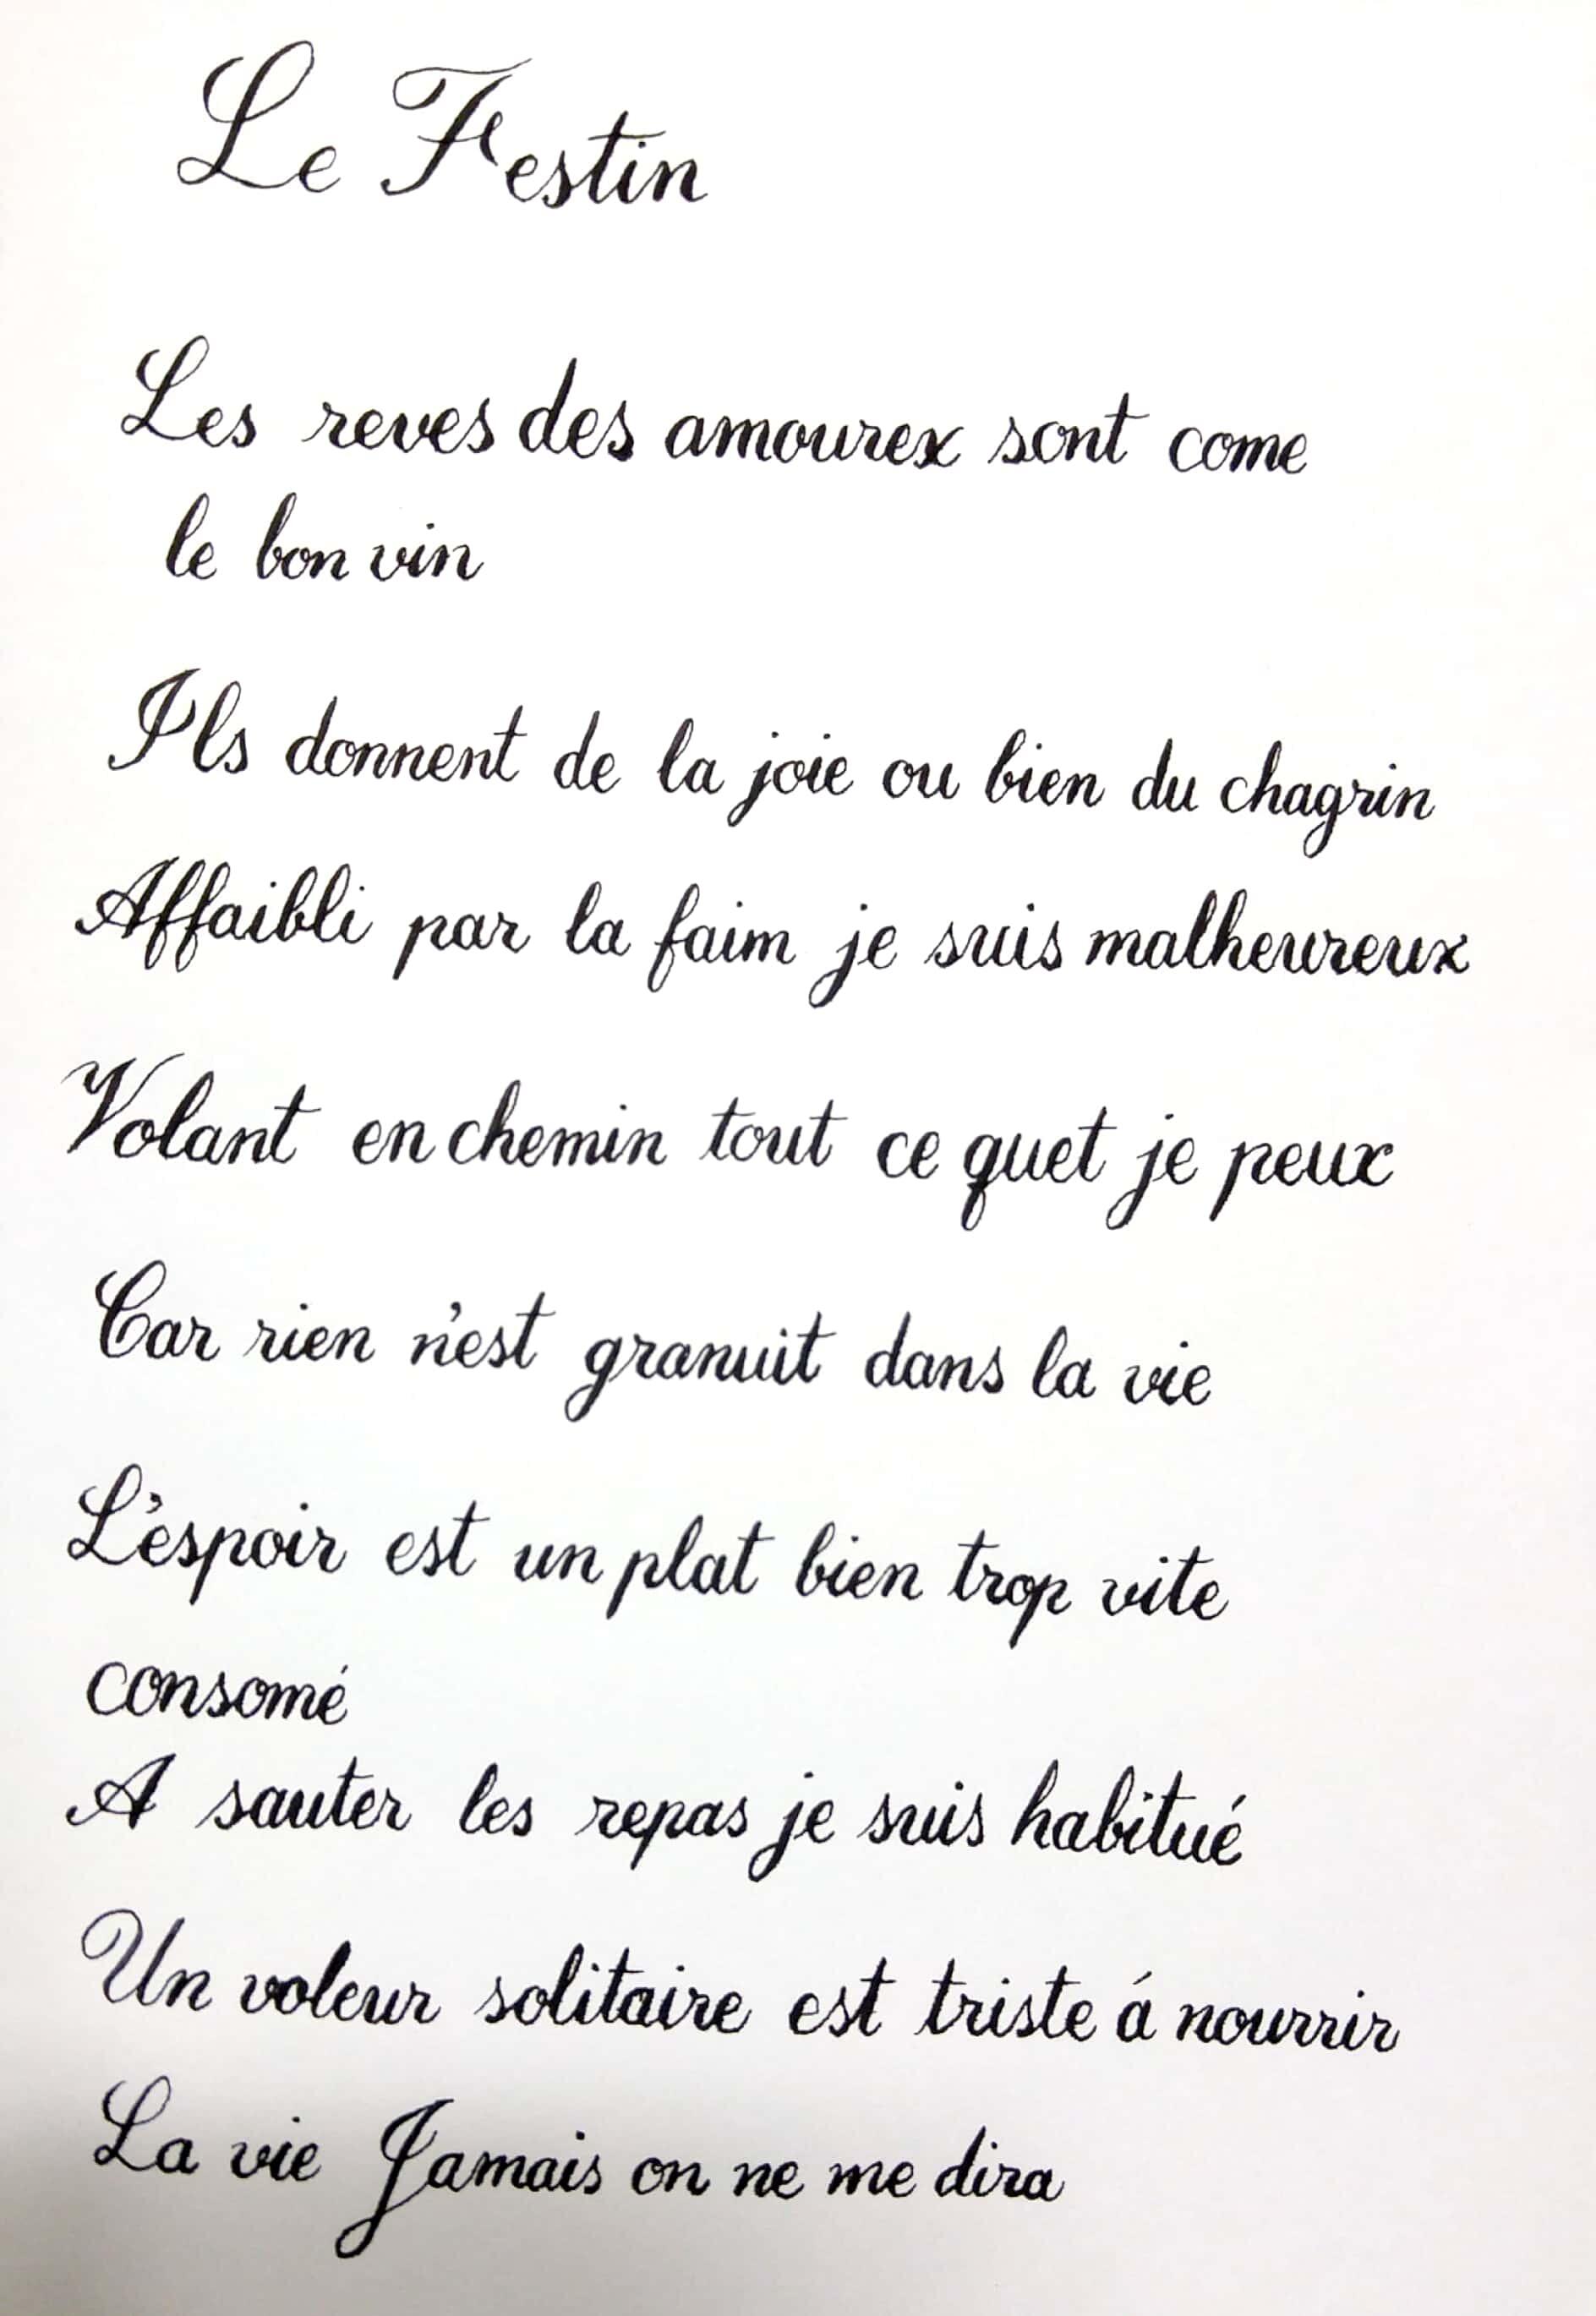 Le Festin
Les reves des amourex sont come
le bon vin
Ils donnent de la joie ou bien du chagrin
Affaibli par la faim je suis malheureux
Volant en chemin tout ce quet je peux
Car rien n'est granuit dans la vie
L'espoir est un plat bien trop vite
consomé
A sauter les repas je suis habitué
Un voleur solitaire est triste á nourrir
La vie Jamais on ne me dira